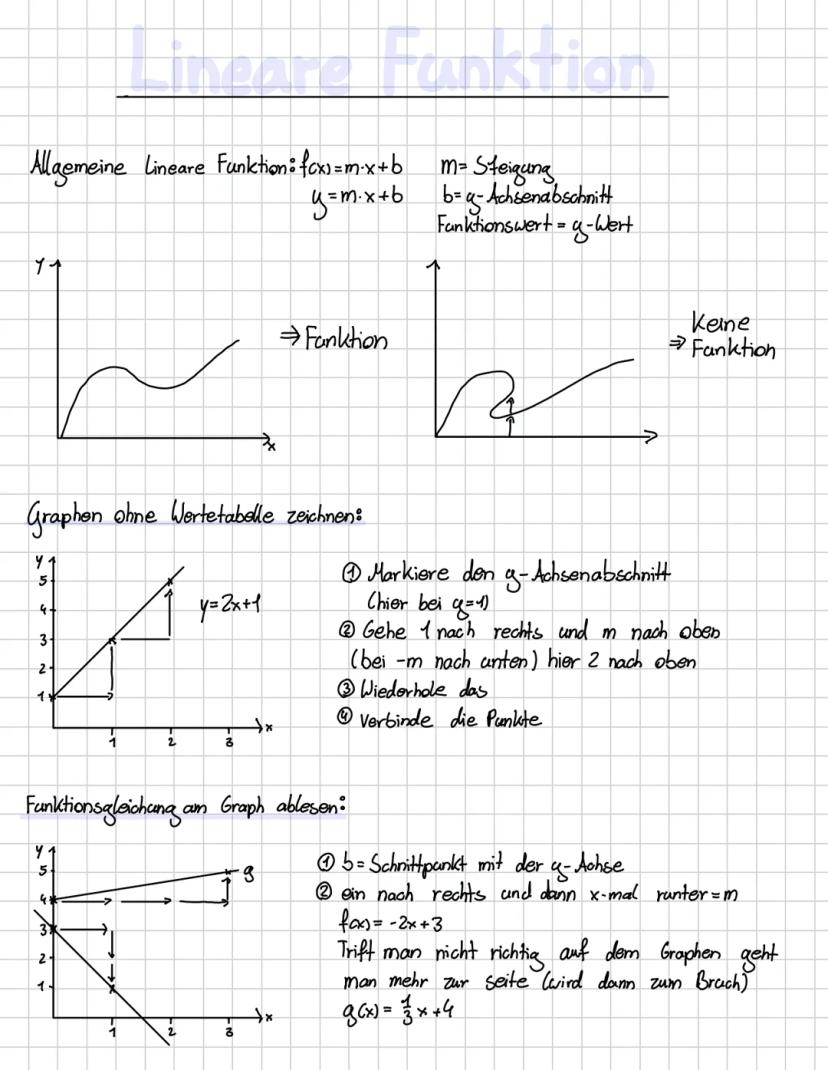 Lineare Funktion
Allgemeine Lineare Funktion: f(x)=m·x+b
y=m·x+b
m= Steigung
b= y-Achsenabschnitt
Funktionswert = y-Wert
Y
x
⇒ Funktion
Keine
⇒ Funktion
Graphen ohne Wertetabelle zeichnen:
Y
5
4
3
2
1
1 2 3 x
y=2x+1
① Markiere den y-Achsenabschnitt
(hier bei y=1)
② Gehe 1 nach rechts und m nach oben
(bei -m nach unten) hier 2 nach oben
③ Wiederhole das
④ Verbinde die Punkte
Funktionsgleichung am Graph ablesen:
Y
5
4
3
2
1
1 2 3 x
g
① b= Schnittpunkt mit der y-Achse
② ein nach rechts und dann x-mal runter=m
f(x)= -2x+3
Trift man nicht richtig auf dem Graphen geht
man mehr zur seite (wird dann zum Bruch)
g(x)= 1/3 x+4